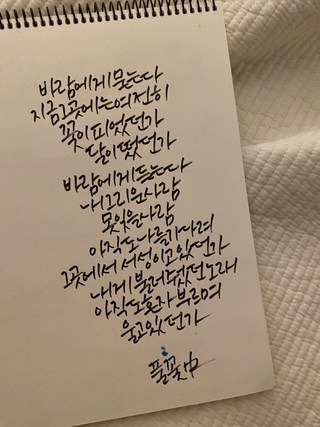 바람에게 묻는다
지금 그곳에는 여전히
꽃이 피었던가
달이 떴던가
바람에게 듣는다
내 그리운 사람
못 잊을 사람
아직도 나를 기다려
그곳에서 서성이고 있던가
내게 불러줬던 노래
아직도 혼자 부르며
울고 있던가
풀꽃中